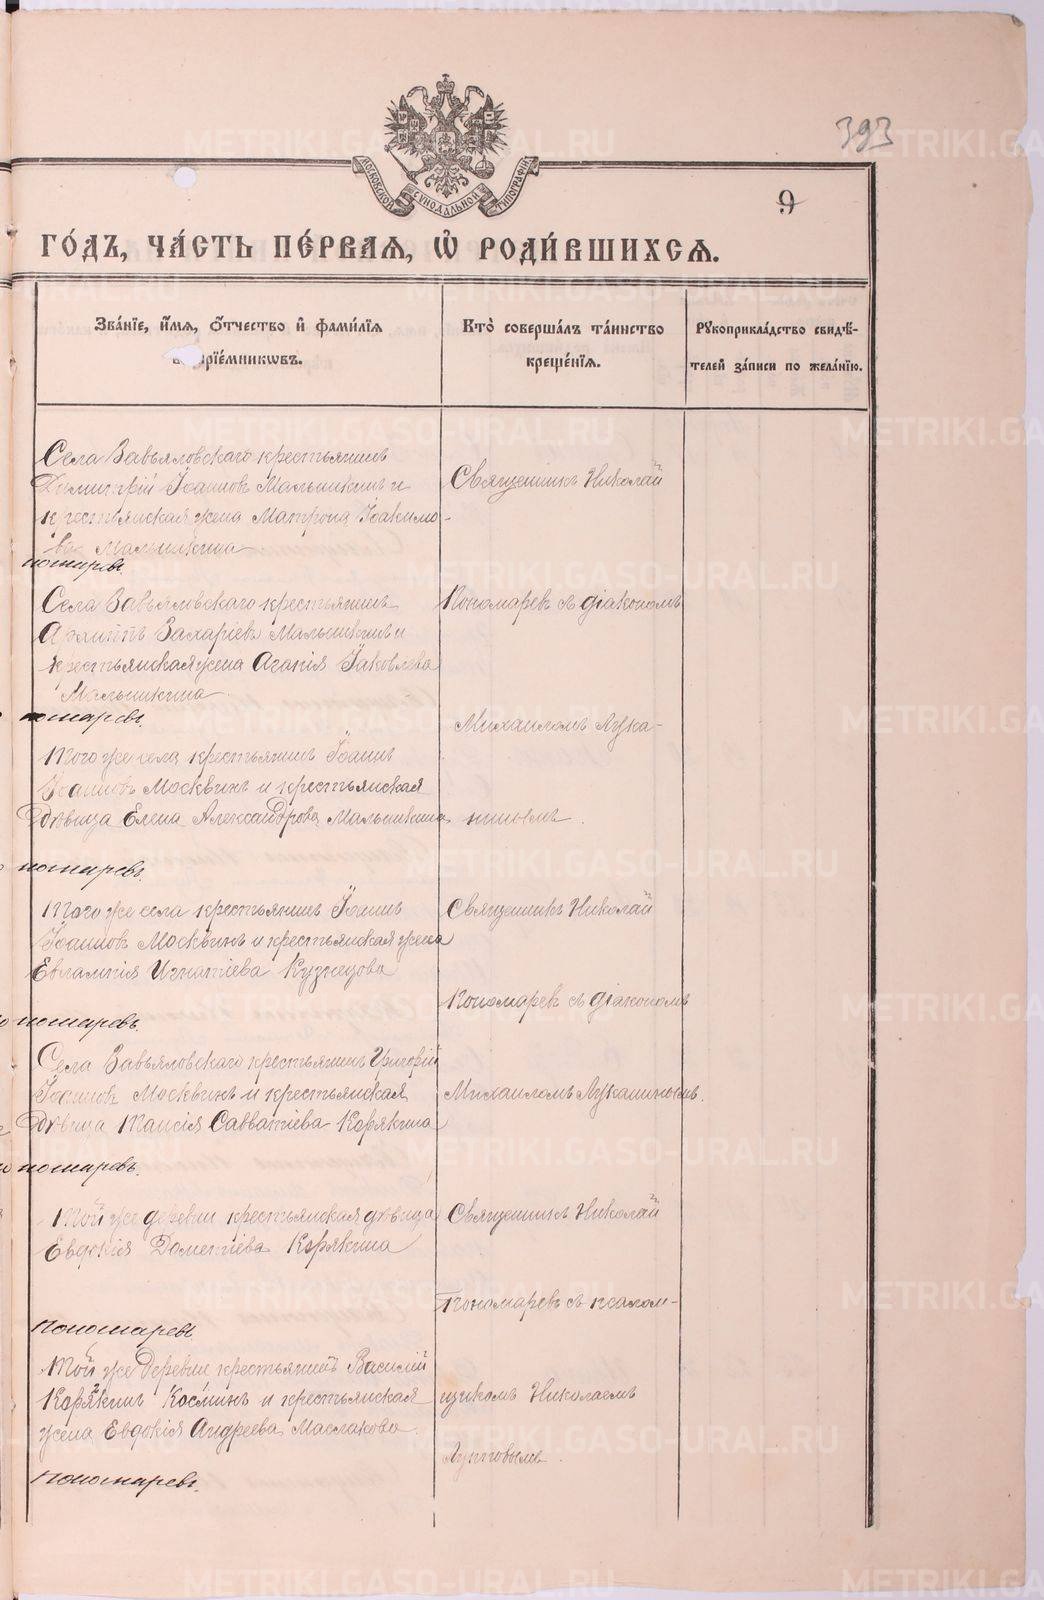 393
МОСКОВСКОЙ СѴНОДАЛЬНОЙ ТИПОГРАФІИ
9
ГО́ДЪ, ЧА́СТЬ ПЕ́РВАЯ, Ѽ РОДИ́ВШИХСЯ.
Зва́нїе, и҆́мя, ѻ҆́тчество и҆ фами́лїя
рїе́мникѡвъ.
Кто̀ соверша́лъ та́инство
креще́нїя.
Рꙋкоприкла́дство свидѣ́-
телей за́писи по жела́нїю.
Села Завьяловскаго крестьянинъ
Димитрій Іоанновъ Малышкинъ и
крестьянская жена Матрона Іоакимо-
ва Малышкина
Священникъ Николай
номаревъ.
Села Завьяловскаго крестьянинъ
Захаріевъ Малышкинъ и
крестьянская жена Агапія Іаковлева
Малышкина
Пономаревъ съ діакономъ
номаревъ.
Михаиломъ Лука-
Того же села крестьянинъ Іоаннъ
Іоанновъ Москвинъ и крестьянская
дѣвица Елена Александрова Малышкина
ниновымъ.
номаревъ.
Того же села крестьянинъ Іоаннъ
Іоанновъ Москвинъ и крестьянская жена
Евлампія Игнатіева Кузнецова
Священникъ Николай
Пономаревъ съ діакономъ
ономаревъ.
Села Завьяловскаго крестьянинъ Григорій
Іоанновъ Москвинъ и крестьянская
дѣвица Таисія Савватіева Корякина
Михаиломъ Лукаши­новымъ.
ономаревъ.
Той же деревни крестьянская дѣвица
Евдокія Дометіева Корякина
Священникъ Николай
Пономаревъ съ псалом-
Пономаревъ
Той же деревни крестьянинъ Василій
Корякинъ Косминъ и крестьянская
жена Евдокія Андреева Маслакова.
щикомъ Николаемъ
Луповымъ.
Пономаревъ.
METRIKI.GASO-URAL.RU